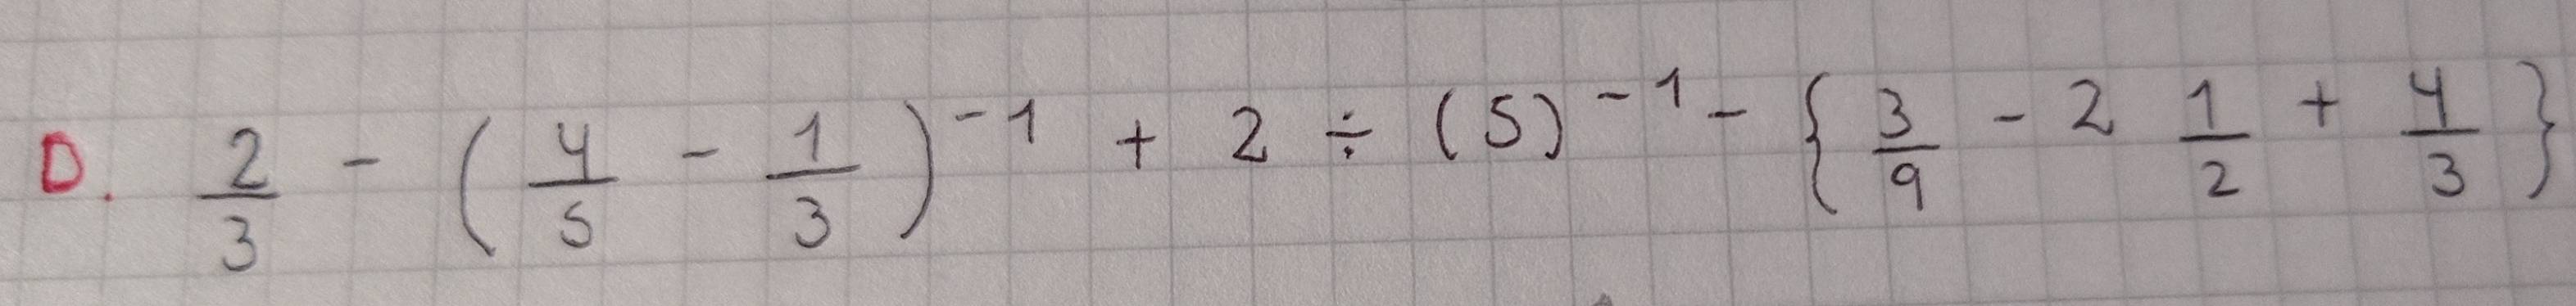 D. 2/3 - (4/5 - 1/3)^-1 + 2 ÷ (5)^-1 - {3/9 - 2 1/2 + 4/3}